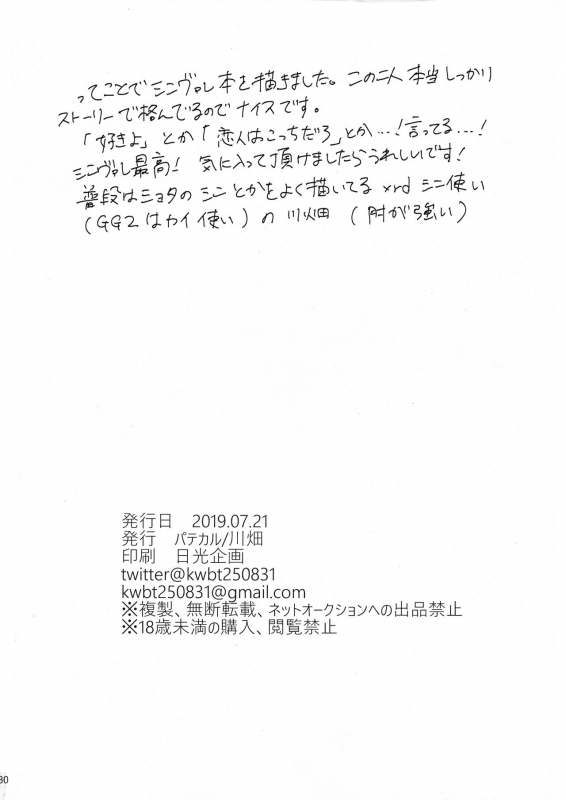 ってことでシンヴァレ本を描きました。この二人本当しっかり
ストーリーで絡んでるのでナイスです。
「好きよ」とか「恋人はこっちだろ」とか…！言ってる…！
シンヴァレ最高！ 気に入って頂けましたらうれしいです！
普段はショタのシンとかをよく描いてる xrd シン使い
(GG2はカイ使い) の 川畑 (肘が強い)
発行日 2019.07.21
発行 パテカル/川畑
印刷 日光企画
twitter@kwbt250831
kwbt250831@gmail.com
※複製、無断転載、ネットオークションへの出品禁止
※18歳未満の購入、閲覧禁止
30